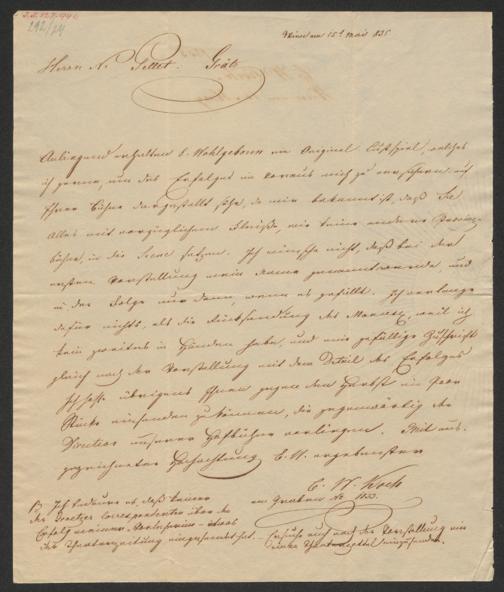 292/24
Wien am 15t Mai 835
Herrn N. Pellet. Grätz
Anliegend erhalten E. Wohlgeboren ein Original Lustspiel, welches
ich gerne, um des Erfolges im Voraus mich zu versichern, auf
Ihrer Bühne dargestellt sehe, da mir bekannt ist, daß Sie
Alles mit vorzüglichem Fleiße, wie keine andere Provinz
bühne, in die Scene setzen. Ich wünsche nicht, daß bei der
ersten Vorstellung mein Name genannt werde, und
in der Folge nur dann, wenn es gefällt. Ich verlange
dafür nichts, als die Rücksendung des Manusc, weil ich
kein zweites in Händen habe, und eine gefällige Zuschrift
gleich nach der Vorstellung mit dem Detail des Erfolges
Ich hoffe übrigens Ihnen gegen den Herbst ein paar
Stücke einsenden zu können, die gegenwärtig der
Direction unserer Hofbühne vorliegen. Mit aus-
gezeichneter Hochachtung E. W. ergebenster
C. W. Koch
am Graben No 1133.
Ich bedaure es, daß keiner
der Gratzer Correspondenten über den
Erfolg meines
der Theaterzeitung eingesendet hat. – Ersuche auch nach der Vorstellung mir
einen Theaterzettel einzusenden.